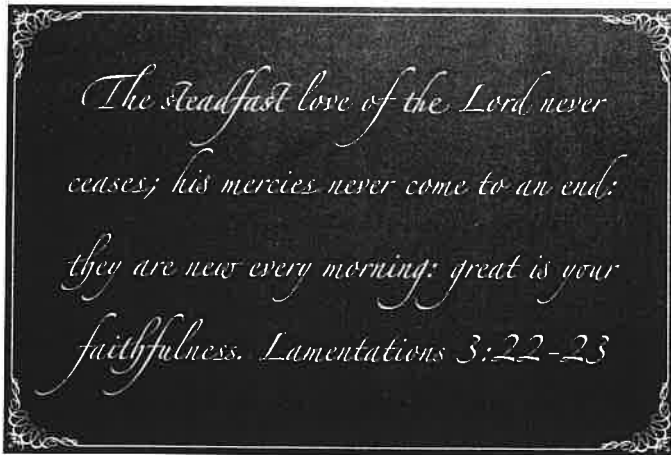 The steadfast love of the Lord never
ceases; his mercies never come to an end:
they are new every morning: great is your
faithfulness. Lamentations 3:22-23